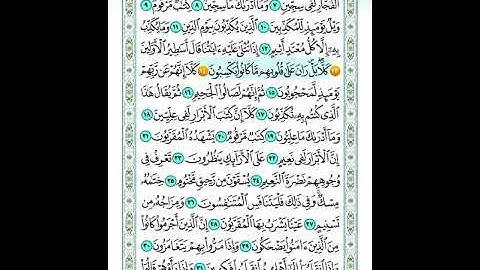 الْفُجَّارِ لَفِي سِجِّينٍ ٧ وَمَا أَدْرَاكَ مَا سِجِّينٌ ٨ كِتَابٌ مَّرْقُومٌ ٩
وَيْلٌ يَوْمَئِذٍ لِّلْمُكَذِّبِينَ ١٠ الَّذِينَ يُكَذِّبُونَ بِيَوْمِ الدِّينِ ١١ وَمَا يُكَذِّبُ
بِهِ إِلَّا كُلُّ مُعْتَدٍ أَثِيمٍ ١٢ إِذَا تُتْلَىٰ عَلَيْهِ ءَايَاتُنَا قَالَ أَسَاطِيرُ الْأَوَّلِينَ
١٣ كَلَّا بَلْ رَانَ عَلَىٰ قُلُوبِهِم مَّا كَانُوا يَكْسِبُونَ ١٤ كَلَّا إِنَّهُمْ عَن رَّبِّهِمْ
يَوْمَئِذٍ لَّمَحْجُوبُونَ ١٥ ثُمَّ إِنَّهُمْ لَصَالُوا الْجَحِيمِ ١٦ ثُمَّ يُقَالُ هَٰذَا
الَّذِي كُنتُم بِهِ تُكَذِّبُونَ ١٧ كَلَّا إِنَّ كِتَابَ الْأَبْرَارِ لَفِي عِلِّيِّينَ ١٨
وَمَا أَدْرَاكَ مَا عِلِّيُّونَ ١٩ كِتَابٌ مَّرْقُومٌ ٢٠ يَشْهَدُهُ الْمُقَرَّبُونَ ٢١
إِنَّ الْأَبْرَارَ لَفِي نَعِيمٍ ٢٢ عَلَى الْأَرَائِكِ يَنظُرُونَ ٢٣ تَعْرِفُ فِي
وُجُوهِهِمْ نَضْرَةَ النَّعِيمِ ٢٤ يُسْقَوْنَ مِن رَّحِيقٍ مَّخْتُومٍ ٢٥ خِتَامُهُ
مِسْكٌ وَفِي ذَٰلِكَ فَلْيَتَنَافَسِ الْمُتَنَافِسُونَ ٢٦ وَمِزَاجُهُ مِن
تَسْنِيمٍ ٢٧ عَيْنًا يَشْرَبُ بِهَا الْمُقَرَّبُونَ ٢٨ إِنَّ الَّذِينَ أَجْرَمُوا كَانُوا
مِنَ الَّذِينَ ءَامَنُوا يَضْحَكُونَ ٢٩ وَإِذَا مَرُّوا بِهِمْ يَتَغَامَزُونَ ٣٠
وَإِذَا انقَلَبُوا إِلَىٰ أَهْلِهِمُ انقَلَبُوا فَكِهِينَ ٣١ وَإِذَا رَأَوْهُمْ قَالُوا